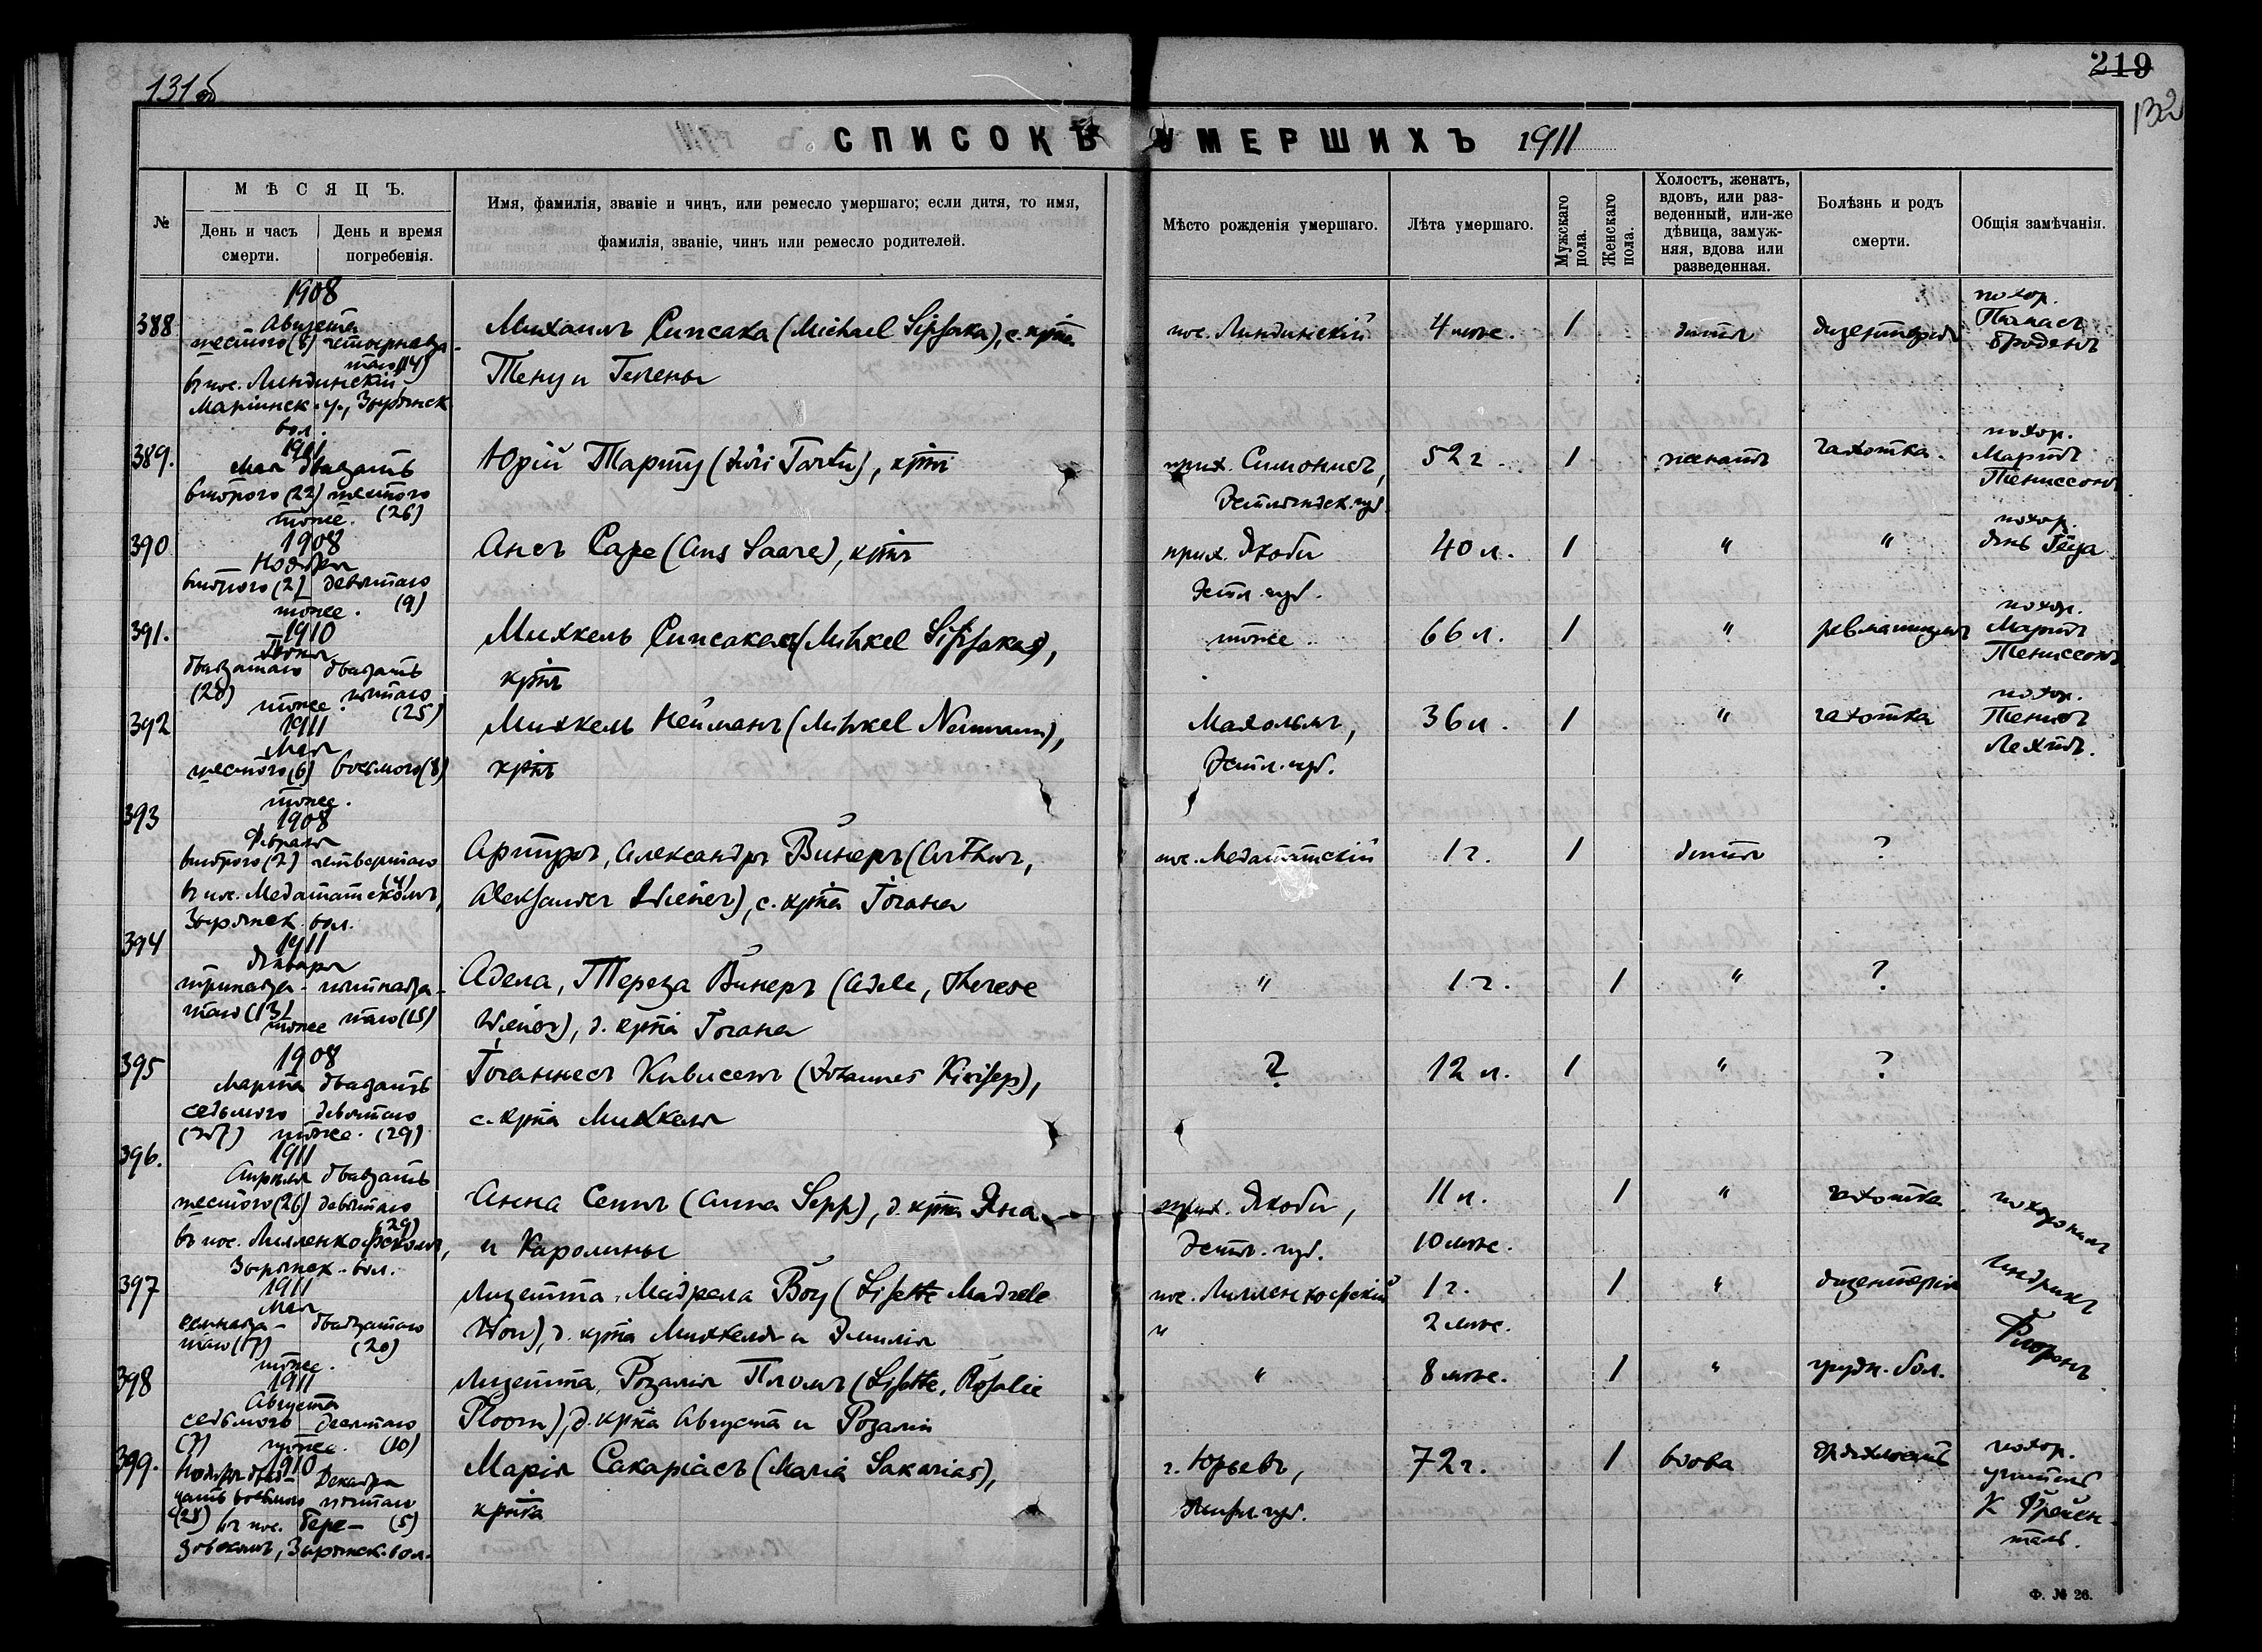 131об
219
132
СПИСОКЪ УМЕРШИХЪ 1911
№
МѢСЯЦЪ.
День и часъ смерти.
День и время погребенія.
Имя, фамилія, званіе и чинъ, или ремесло умершаго; если дитя, то имя,
фамилія, званіе, чинъ или ремесло родителей.
Мѣсто рожденія умершаго.
Лѣта умершаго.
Мужскаго пола.
Женскаго пола.
Холостъ, женатъ,
вдовъ, или раз-
веденный, или-же
дѣвица, замуж-
няя, вдова или
разведенная.
Болѣзнь и родъ
смерти.
Общія замѣчанія.
388
1908
Августа
четырнадца-
таго (14)
въ пос. Линдинскій
Маріинск. у., Зырянск
вол.
Михаилъ Сипсака (Michael Sipsaka), с. крта
Тену и Гелены
пос. Линдинскій
4 мѣс.
1
дитя
дизентерія
похор.
389.
1911
Мая двадцать
второго (22) шестого
тоже. (26)
Юрій Тарту (Jüri Tartu), кртъ
прих. Симонисъ,
Эстляндск. губ.
52 г.
1
женатъ
чахотка.
похор.
Мартъ
Тениссонъ
390
1908
Ноября
второго (2) девятаго
тоже. (9)
Ансъ Саре (Ans Saare), кртъ
прих. Якоби
Эстл. губ.
40 л.
1
"
"
похор.
391.
1910
Іюня
двадцатаго двадцать
(20) пятаго
тоже. (25)
Михкель Сипсакас (Mihkel Sipsakas),
кртъ
тоже
66 л.
1
"
ревматизмъ
похор.
Мартъ
Тениссонъ
392
1911
Мая
шестого (6) восьмого (8)
тоже.
Михкель Нейманъ (Mihkel Neumann),
кртъ
Махольмъ,
Эстл. губ.
36 л.
1
"
чахотка
похор.
393
1908
Февраля
второго (2) четвертаго
(4)
въ пос. Медататскомъ,
Зырянск. вол.
Артуръ, Александръ Винеръ (Arthur,
Aleksander Wiener), с. крта Іогана
пос. Медататскій
1 г.
1
дитя
?
394
1911
Января
тринадца- пятнадца-
таго (13) таго (15)
тоже
Адела, Тереза Винеръ (Adele, Therese
Wiener), д. крта Іогана
"
1 г.
1
"
?
395
1908
Марта двадцать
седьмого девятаго
(27) тоже. (29)
Іоганнесъ Кивисепъ (Johannes Kivisepp),
с. крта Михкеля
?
12 л.
1
"
?
396.
1911
Апрѣля двадцать
шестого (26) девятаго
(29)
въ пос. Лилленкофскомъ,
Зырянск. вол.
Анна Сеппъ (Anna Sepp), д. крта Яна
и Каролины
прих. Якоби,
Эстл. губ.
11 л.
10 мѣс.
1
"
чахотка
похоронилъ
397
1911
Мая
семнадца- двадцатаго
таго (17) (20)
тоже.
Лизетта, Мадрела Воу (Lisette Madrele
Wou), д. крта Михкеля и Эмилія
пос. Лилленкофскій
"
1 г.
2 мѣс.
1
"
дизентерія
Индрикъ
398
1911
Августа
седьмого десятаго
(7) тоже. (10)
Лизетта, Розалія Плоомъ (Lisette, Rosalie
Ploom), д. крта Августа и Розаліи
"
8 мѣс.
1
"
грудн. бол.
399.
1910
Декабря
пятаго
(28) въ пос. Бере- (5)
зовскомъ, Зырянск. вол.
Марія Сакаріасъ (Maria Sakarias),
кртка
г. Юрьевъ,
Лифл. губ.
72 г.
1
вдова
дряхлость
похор.
учитель
К Фрейен-
таль.
Ф. № 26.